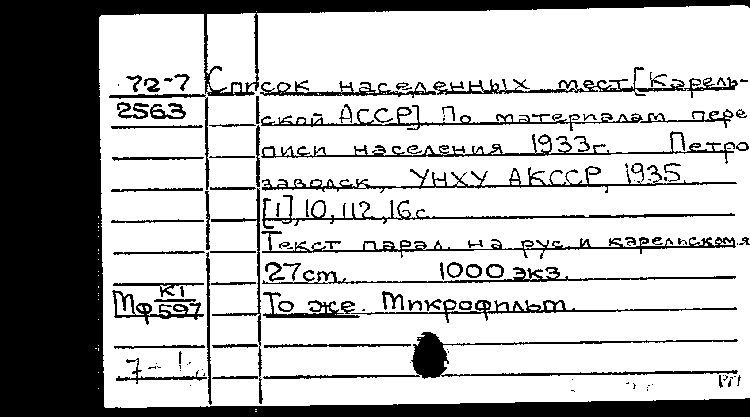 72-7 Список населенных мест [Карель-
2563 ской АССР]. По материалам пере
писи населения 1933г. Петро
заводск, УНХУ АКССР, 1935.
[1], 10, 112, 16с.
Текст парал. на рус. и карельском я
27cm. 1000 экз.
Мф К1/597 То же. Микрофильм.